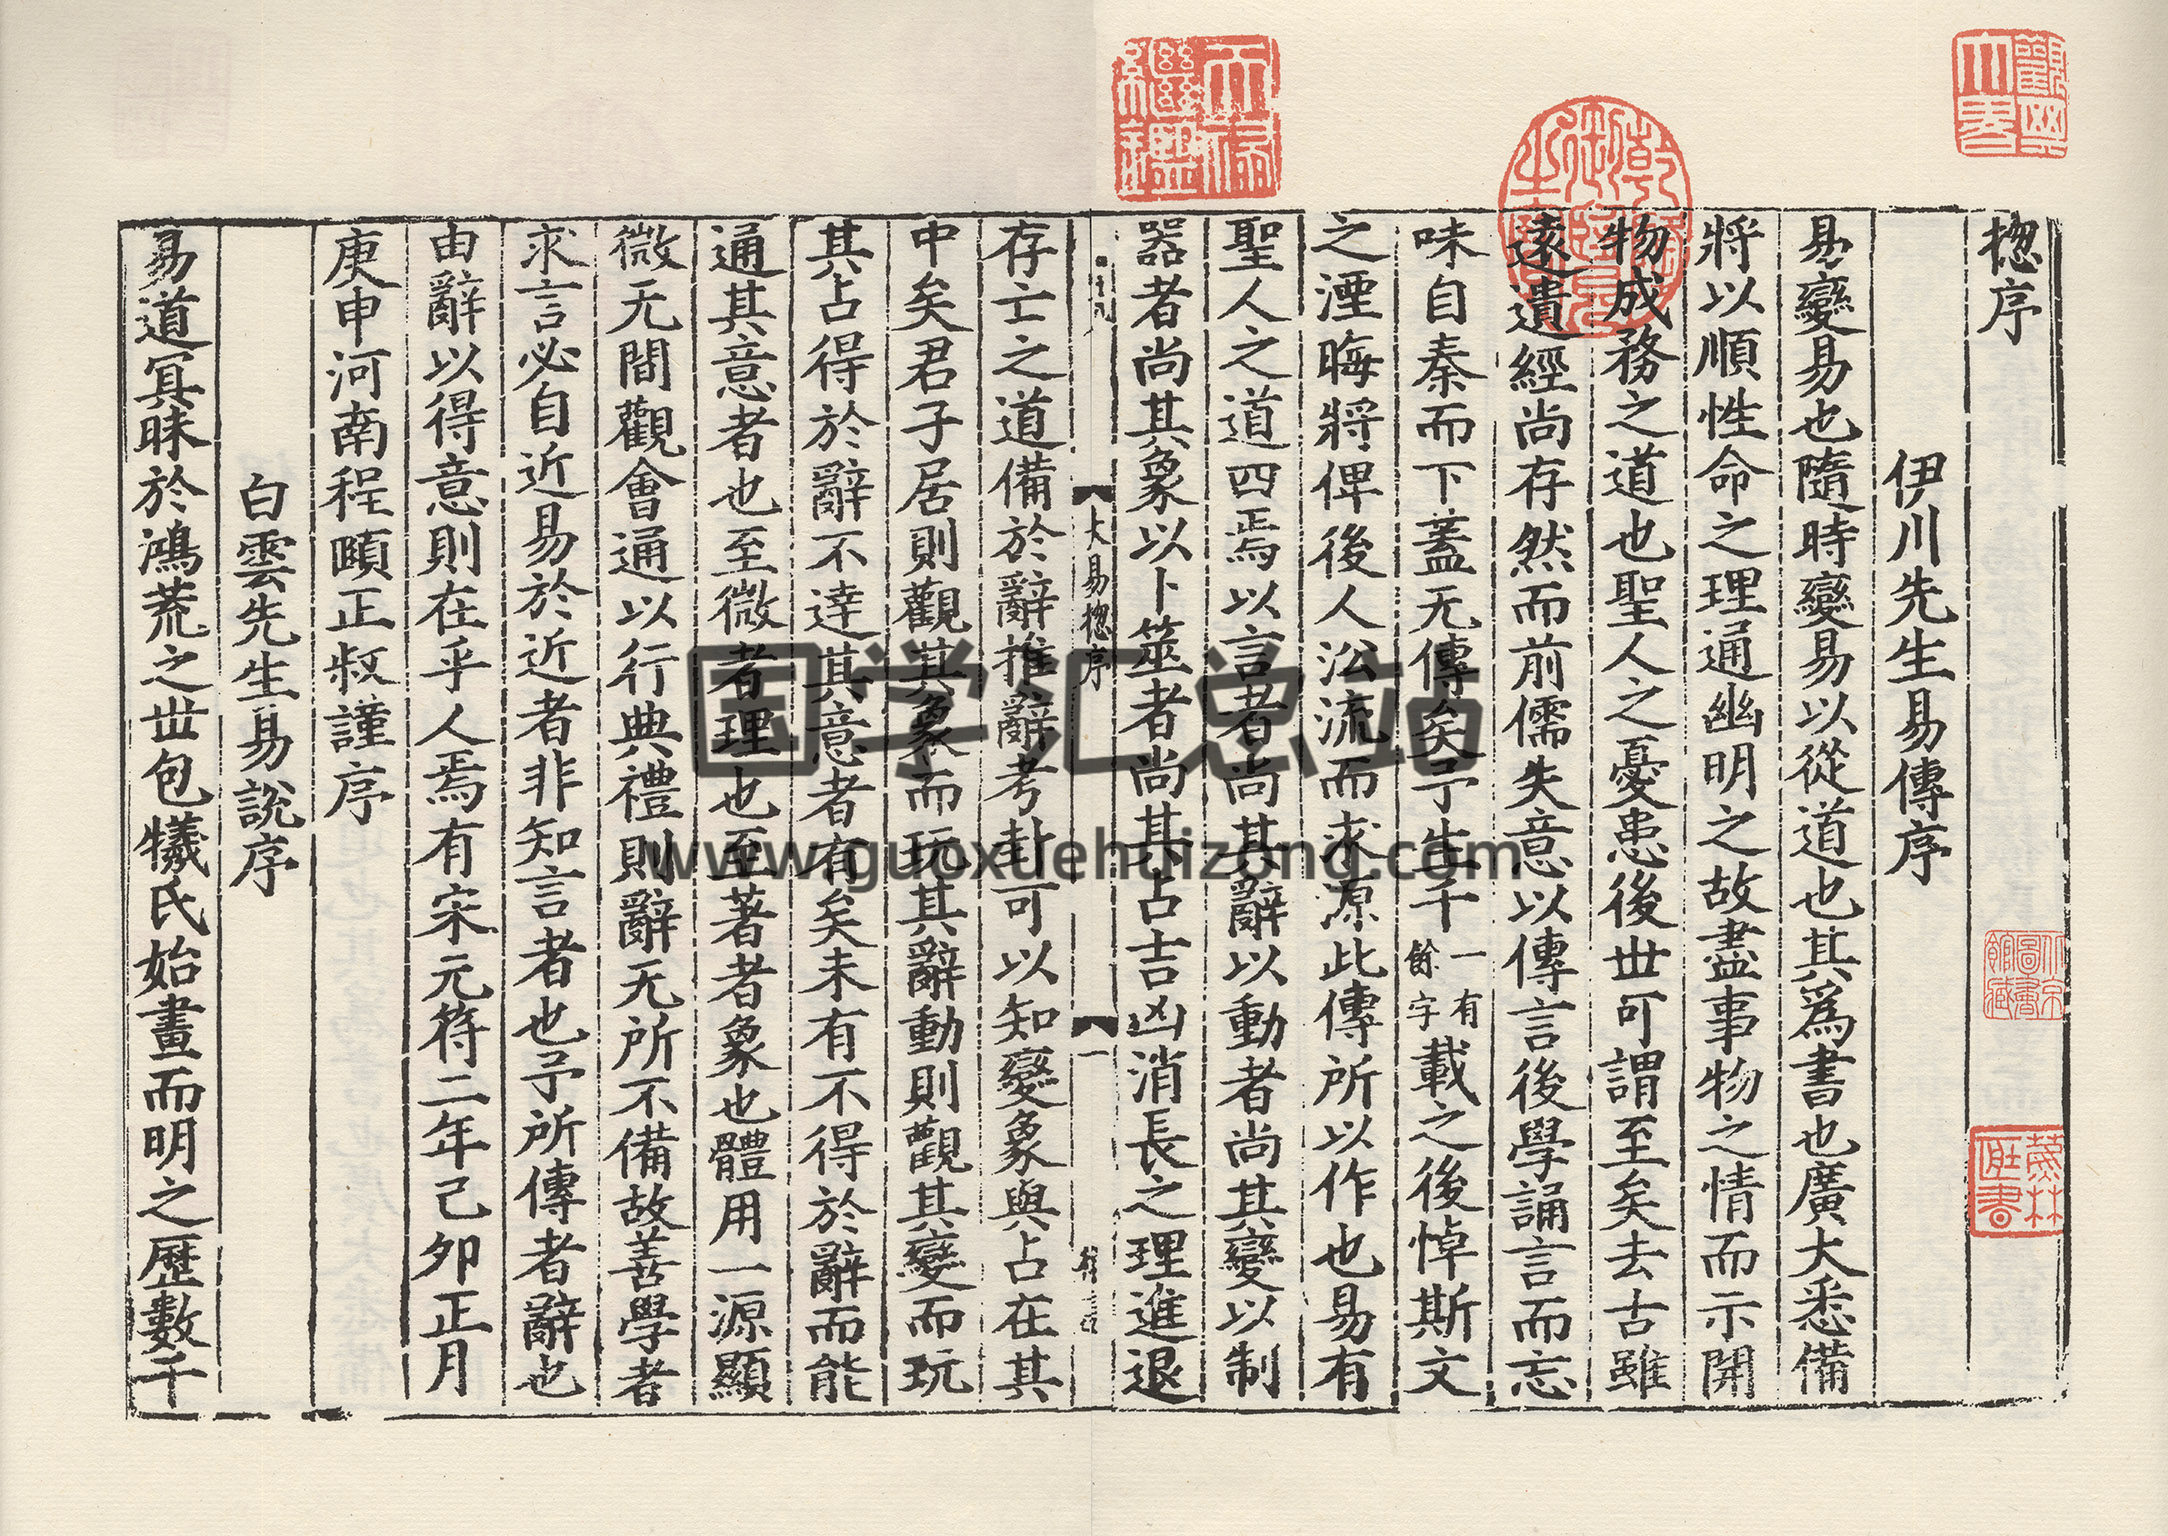 揔序
伊川先生易傳序
易變易也隨時變易以從道也其爲書也廣大悉備
將以順性命之理通幽明之故盡事物之情而示開
物成務之道也聖人之憂患後世可謂至矣去古雖
遠遺經尚存然而前儒失意以傳言後學誦言而忘
味自秦而下蓋无傳矣予生千一有餘字載之後悼斯文
之湮晦將俾後人沿流而求源此傳所以作也易有
聖人之道四焉以言者尚其辭以動者尚其變以制
器者尚其象以卜筮者尚其占吉凶消長之理進退
大易揔序
一
存亡之道備於辭推辭考卦可以知變象與占在其
中矣君子居則觀其象而玩其辭動則觀其變而玩
其占得於辭不達其意者有矣未有不得於辭而能
通其意者也至微者理也至著者象也體用一源顯
微无間觀會通以行典禮則辭无所不備故善學者
求言必自近易於近者非知言者也予所傳者辭也
由辭以得意則在乎人焉有宋元符二年己卯正月
庚申河南程頤正叔謹序
白雲先生易說序
易道冥昧於鴻荒之世包犧氏始畫而明之歷數千
国学汇总站
www.guoxuehuizong.com